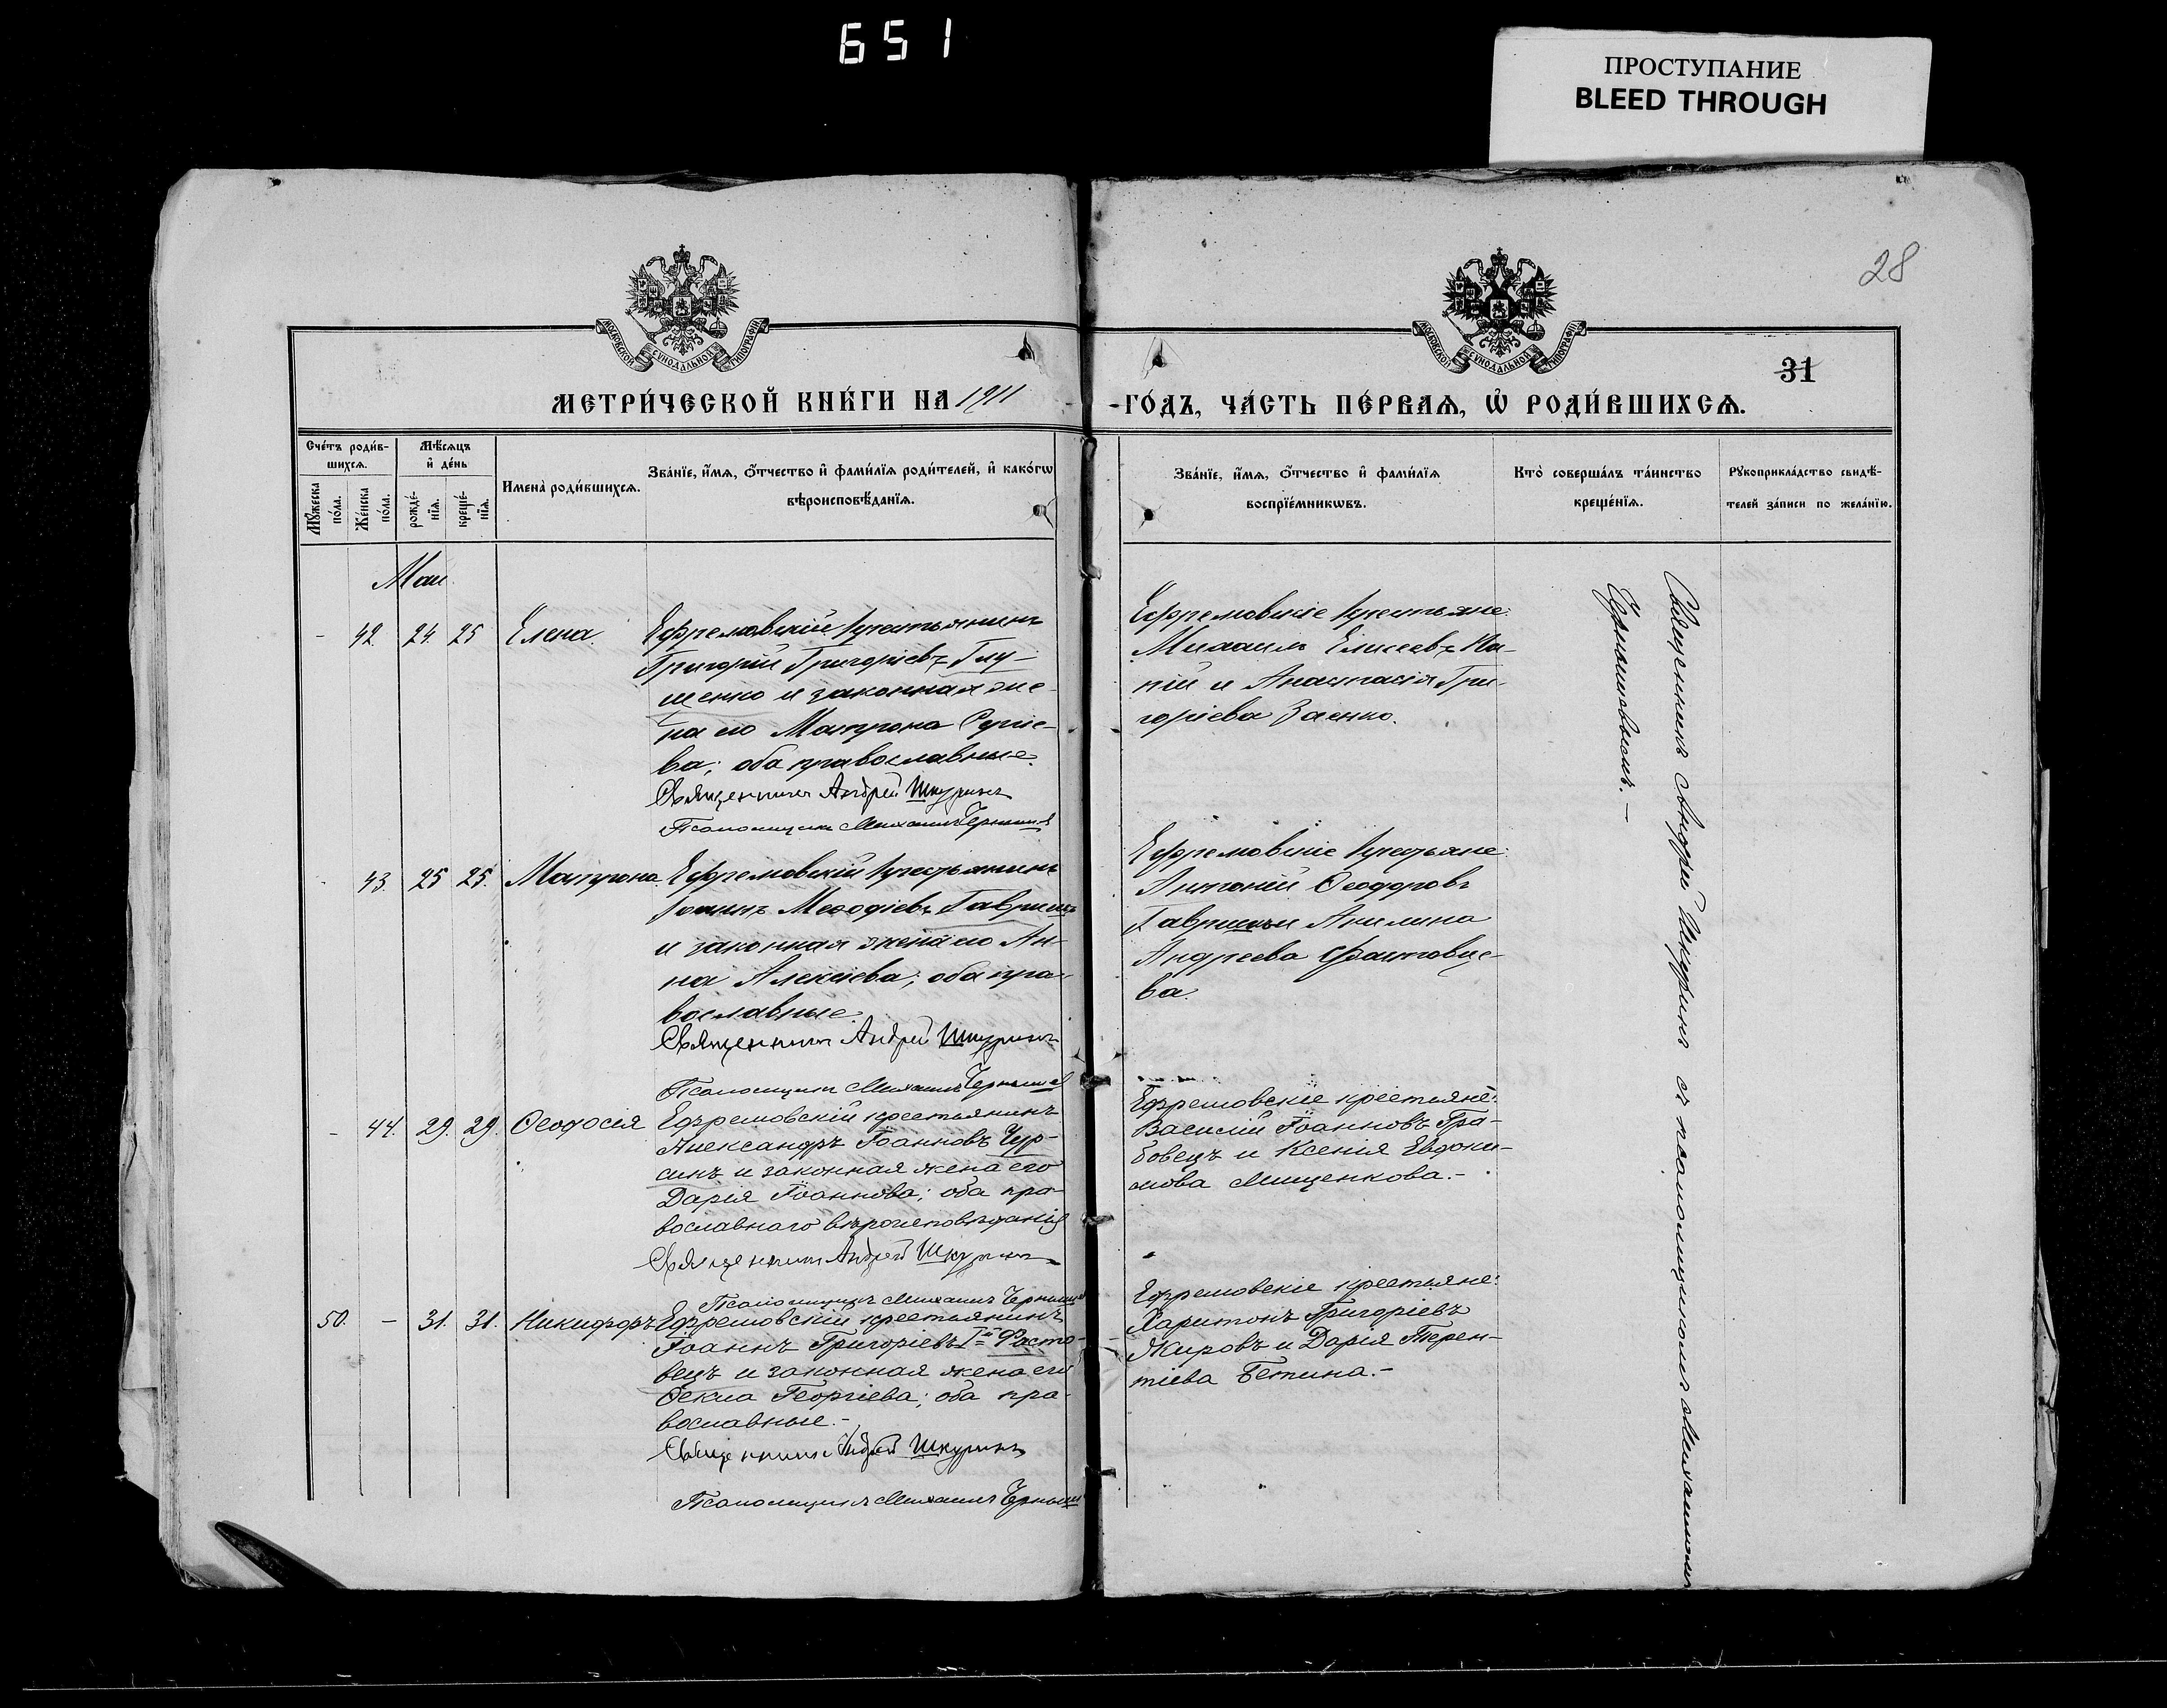 651
ПРОСТУПАНИЕ
BLEED THROUGH
28
МОСКОВСКОЙ СѴНОДАЛЬНОЙ ТИПОГРАФІИ
МОСКОВСКОЙ СѴНОДАЛЬНОЙ ТИПОГРАФІИ
31
МЕТРИ́ЧЕСКОЙ КНИ́ГИ НА 1911
ГО́ДЪ, ЧА́СТЬ ПЕ́РВАѦ, Ѡ҆ РОДИ́ВШИХСѦ.
Сче́тъ роди́в-
шихсѧ.
Мꙋ́жеска
по́ла.
Же́нска
по́ла.
Мѣ́сѧцъ
и҆ де́нь
рожде́-
нїѧ.
креще́-
нїѧ.
Имена̀ роди́вшихсѧ.
Зва́нїе, и҆́мѧ, ѻ҆́тчество и҆ фами́лїѧ роди́телей, и҆ како́гѡ
вѣроисповѣ́данїѧ.
Зва́нїе, и҆́мѧ, ѻ҆́тчество и҆ фами́лїѧ
воспрїе́мникѡвъ.
Кто̀ соверша́лъ та́инство
креще́нїѧ.
Рꙋкоприкла́дство свидѣ́-
телей за́писи по жела́нїю.
Маи
- 42. 24. 25 Елена.
Ефремовскій крестьянинъ
Григорій Григоріевъ Глу-
щенко и законная же-
на его Матрона Сергіе-
ва; оба православные.
Священникъ Андрей Шкуринъ
Псаломщикъ Михаилъ Чернышев
Ефремовскіе крестьяне:
Михаилъ Елисеевъ
и Анастасія Гри-
горіева Заенко.
- 43. 25 25. Матрона.
Ефремовскій крестьянинъ
Іоаннъ Меѳодіевъ Гавришъ
и законная жена его Ан-
на Алексѣева; оба пра-
вославные.
Священникъ Андрей Шкуринъ
Псаломщикъ Михаилъ Чернышев
Ефремовскіе крестьяне:
Антоній Ѳеодоровъ
Гавришъ и Акилина
Андреева Фастовце-
ва.
- 44. 29. 29. Ѳеодосія
Ефремовскій крестьянинъ
Александръ Іоанновъ Чур-
синъ и законная жена его
Дарія Іоаннова; оба пра-
вославнаго вѣроисповѣданія
Священникъ Андрей Шкуринъ
Псаломщикъ Михаилъ Чернышев
Ефремовскіе крестьяне:
Василій Іоанновъ Гра-
бовецъ и Ксенія Евдоки-
мова Мищенкова.-
50. - 31. 31. Никифоръ
Ефремовскій крестьянинъ
Іоаннъ Григоріевъ Iй Фасто-
вецъ и законная жена его
Ѳекла Георгіева; оба пра-
вославные.-
Священникъ Андрей Шкуринъ
Псаломщикъ Михаилъ Черныш
Ефремовскіе крестьяне:
Харитонъ Григоріевъ
Жировъ и Дарія Терен-
тіева Бетина.-
Священникъ Андрей Шкуринъ съ псаломщикомъ Михаиломъ
Чернышовымъ.-